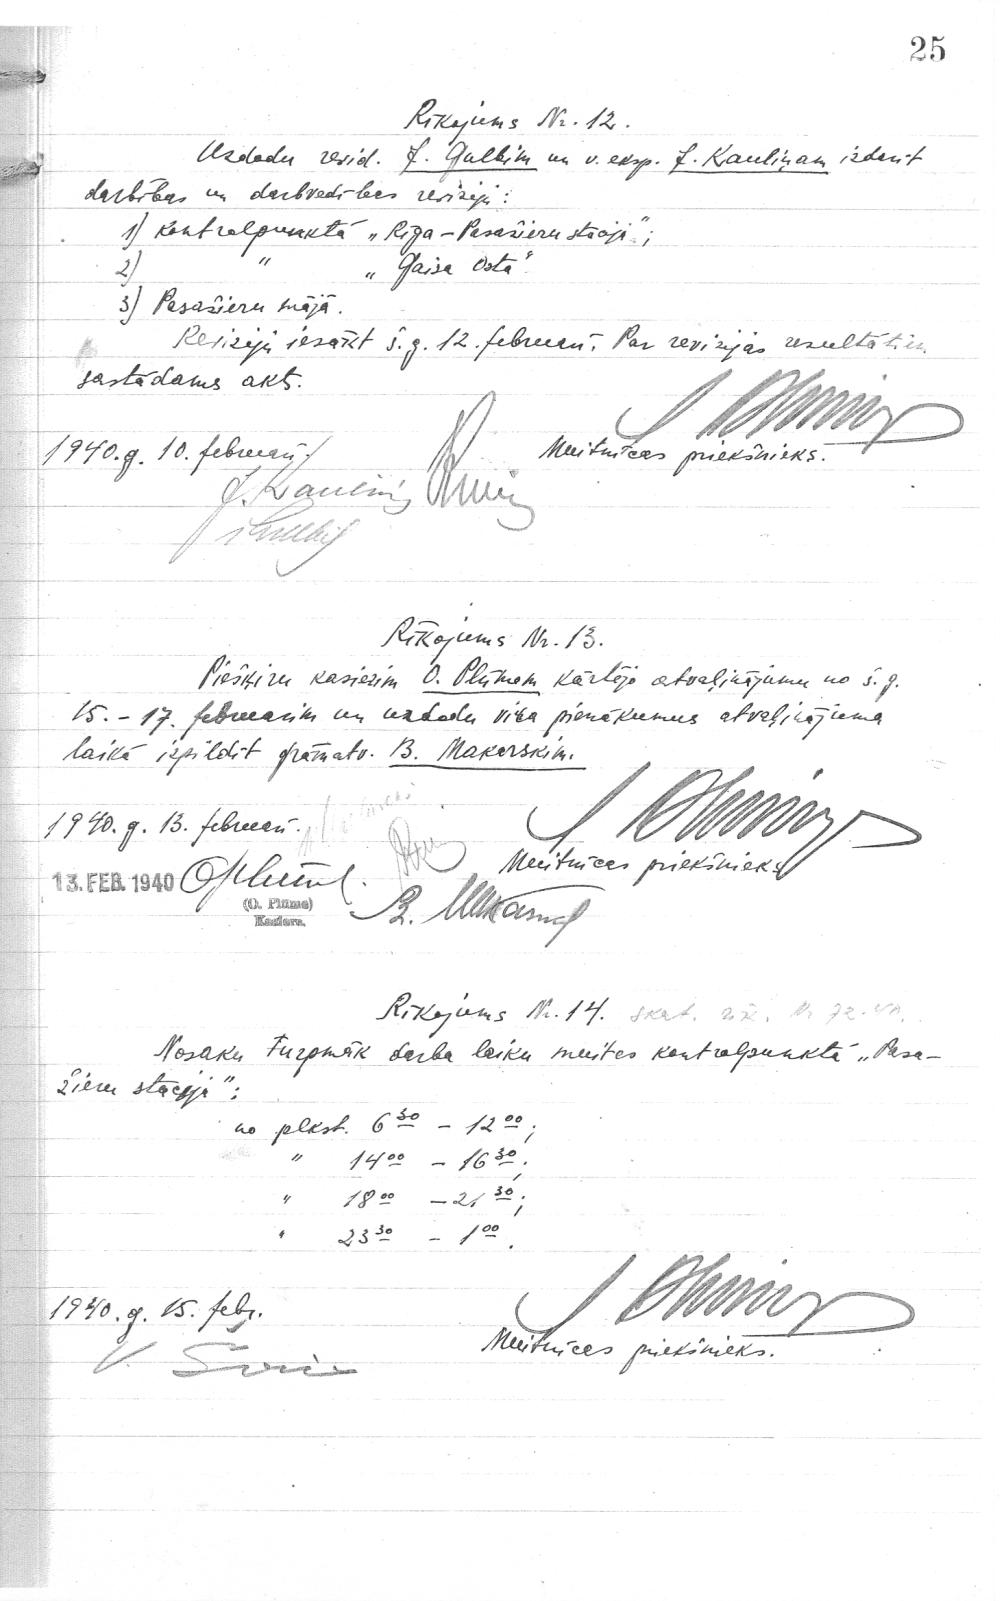 25
Rīkojums Nr. 12.
Uzdodu revid. J. Gulbim un v. eksp. J. Kauliņam izdarīt
darbības un darbvedības revīziju:
1) Kontrolpunktā „Rīga-Pasažieru stacija";
2) " „Gaisa osta"
3) Pasažieru mājā.
Revīziju iesākt š.g. 12. februarī. Par revīzijas resultātiem
sastādams akts.
1940.g. 10. februarī.
Muitnīcas priekšnieks.
J. Kauliņš
Rīkojums Nr. 13.
Piešķiru kasierim O. Plūmem kārtējo atvaļinājumu no š.g.
15. - 17. februarim un uzdodu viņa pienākumus atvaļinājuma
laikā izpildīt grāmatv. B. Makarskim.
1940.g. 13. februarī.
Muitnīcas priekšnieks
13. FEB. 1940
O Plūme
(O. Plūme)
Kasiers.
B. Makarsk
Rīkojums Nr. 14. skat. rīk. Nr 72
Nosaku turpmāk darba laiku muitas kontrolpunktā „Pasa-
žieru stacija":
no plkst. 6 30 - 12 00;
" 14 00 - 16 30;
" 18 00 - 21 30;
" 23 30 - 1 00.
1940.g. 15. febr.
Muitnīcas priekšnieks.